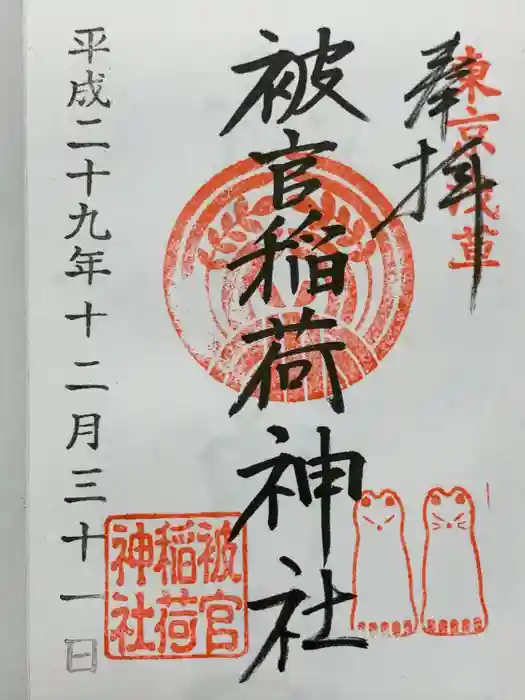 奉拝
東京浅草
被官稲荷神社
被官
稲荷
神社
平成二十九年十二月三十一日